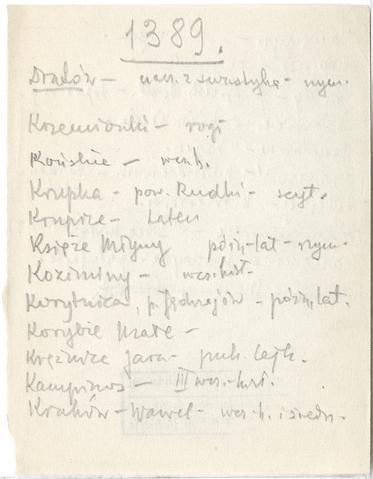 1389.
Krzemionki - rogi
Końskie - wcz. h.
Krupka - pow. Rudki - scyt.
Krupice - Laten
Księże Młyny późn. lat - rzym.
Koziminy - wcz. hist.
Korytnica, p. Jędrzejów - późn. lat.
Korybie Małe -
Krężnica Jara - puh. lejk.
Kampinos - III wcz. - hist.
Kraków - Wawel - wcz. h. i średn.